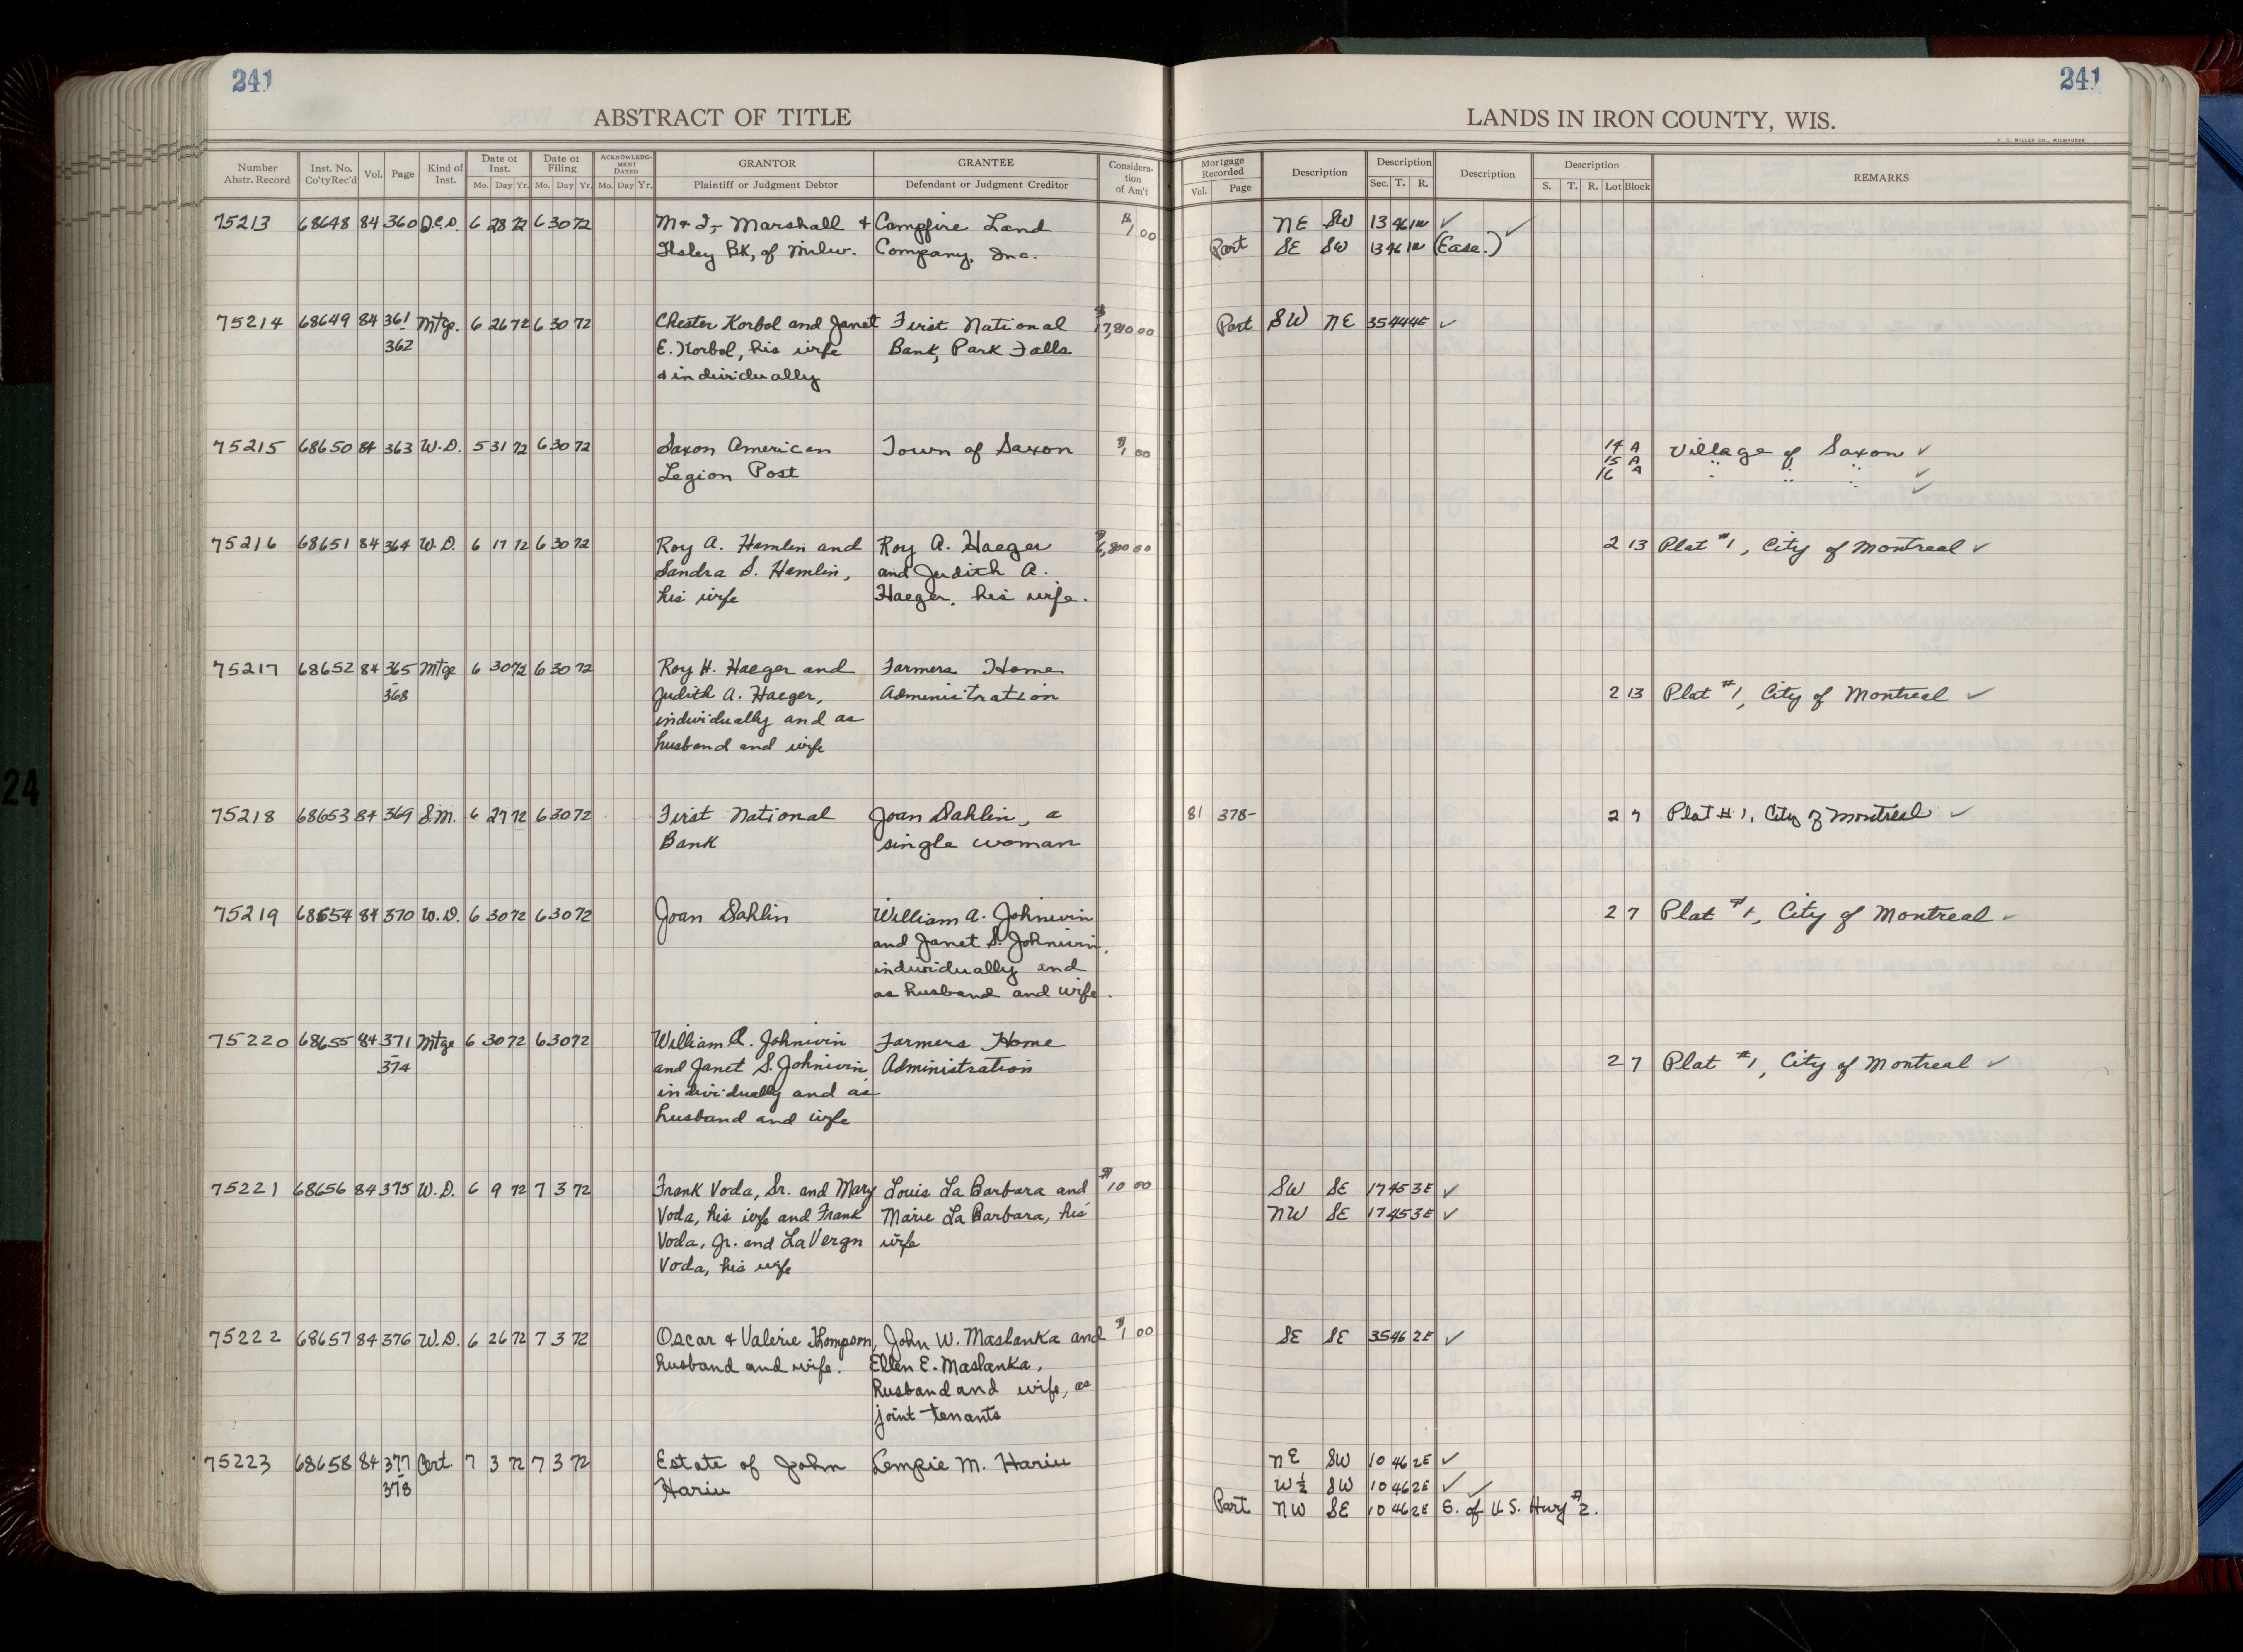 241
241
ABSTRACT OF TITLE
LANDS IN IRON COUNTY, WIS.
H. C. MILLER CO., MILWAUKEE
Number Abstr. Record
Inst. No. Co'ty Rec'd
Vol.
Page
Kind of Inst.
Date of Inst.
Mo. Day Yr.
Date of Filing
Mo. Day Yr.
ACKNOWLEDGMENT DATED
Mo. Day Yr.
GRANTOR
Plaintiff or Judgment Debtor
GRANTEE
Defendant or Judgment Creditor
Consideration of Am't
Mortgage Recorded
Vol. Page
Description
Description
Sec. T. R.
Description
Description
S. T. R. Lot Block
REMARKS
75213 68648 84 360 6 28 72 6 30 72 M + I - Marshall + Campfire Land $1 00 NE SW 13 46 1W ✓ ✓
Ilsley Bk, of Milw. Company, Inc. Part SE SW 13 46 1W (Ease.)
75214 68649 84 361 Mtge. 6 26 72 6 30 72 Chester Korbol and Janet First National Part SW NE 35 44 4E ✓
362 E. Korbol, his wife Bank, Park Falls
+ individually
75215 68650 84 363 W.D. 5 31 72 6 30 72 Saxon American Town of Saxon $1 00 14 A Village of Saxon ✓
Legion Post 15 A " " " ✓
16 A ✓
75216 68651 84 364 W.D. 6 17 72 6 30 72 Roy A. Hamlin and Roy A. Haeger 2 13 Plat #1, City of Montreal ✓
Sandra S. Hamlin, and Judith A.
his wife Haeger, his wife.
75217 68652 84 365 Mtge 6 30 72 6 30 72 Roy H. Haeger and Farmers Home
368 Judith A. Haeger, Administration 2 13 Plat #1, City of Montreal ✓
individually and as
husband and wife
75218 68653 84 369 S.M. 6 27 72 6 30 72 First National Joan Dahlin, a 81 378- 2 7 Plat #1, City of Montreal ✓
Bank single woman
75219 68654 84 370 W.D. 6 30 72 6 30 72 Joan Dahlin William A. Johnivin 2 7 Plat #1, City of Montreal ✓
and Janet S. Johnivin,
individually and
as husband and wife.
75220 68655 84 371 Mtge 6 30 72 6 30 72 William A. Johnivin Farmers Home
374 and Janet S. Johnivin Administration 2 7 Plat #1, City of Montreal ✓
individually and as
husband and wife
75221 68656 84 375 W.D. 6 9 72 7 3 72 Frank Voda, Sr. and Mary Louis La Barbara and $10 00 SW SE 17 45 3E ✓
Voda, his wife and Frank Marie La Barbara, his NW SE 17 45 3E ✓
Voda, Jr. and LaVergn wife
Voda, his wife
75222 68657 84 376 W.D. 6 26 72 7 3 72 Oscar + Valerie Thompson, John W. Maslanka and $1 00 SE SE 35 46 2E ✓
husband and wife. Ellen E. Maslanka,
husband and wife, as
joint tenants
75223 68658 84 377 Cert. 7 3 72 7 3 72 Estate of John Lempie M. Hariu NE SW 10 46 2E ✓
378 Hariu W½ SW 10 46 2E ✓ ✓
Part NW SE 10 46 2E S. of U.S. Hwy #2.
24